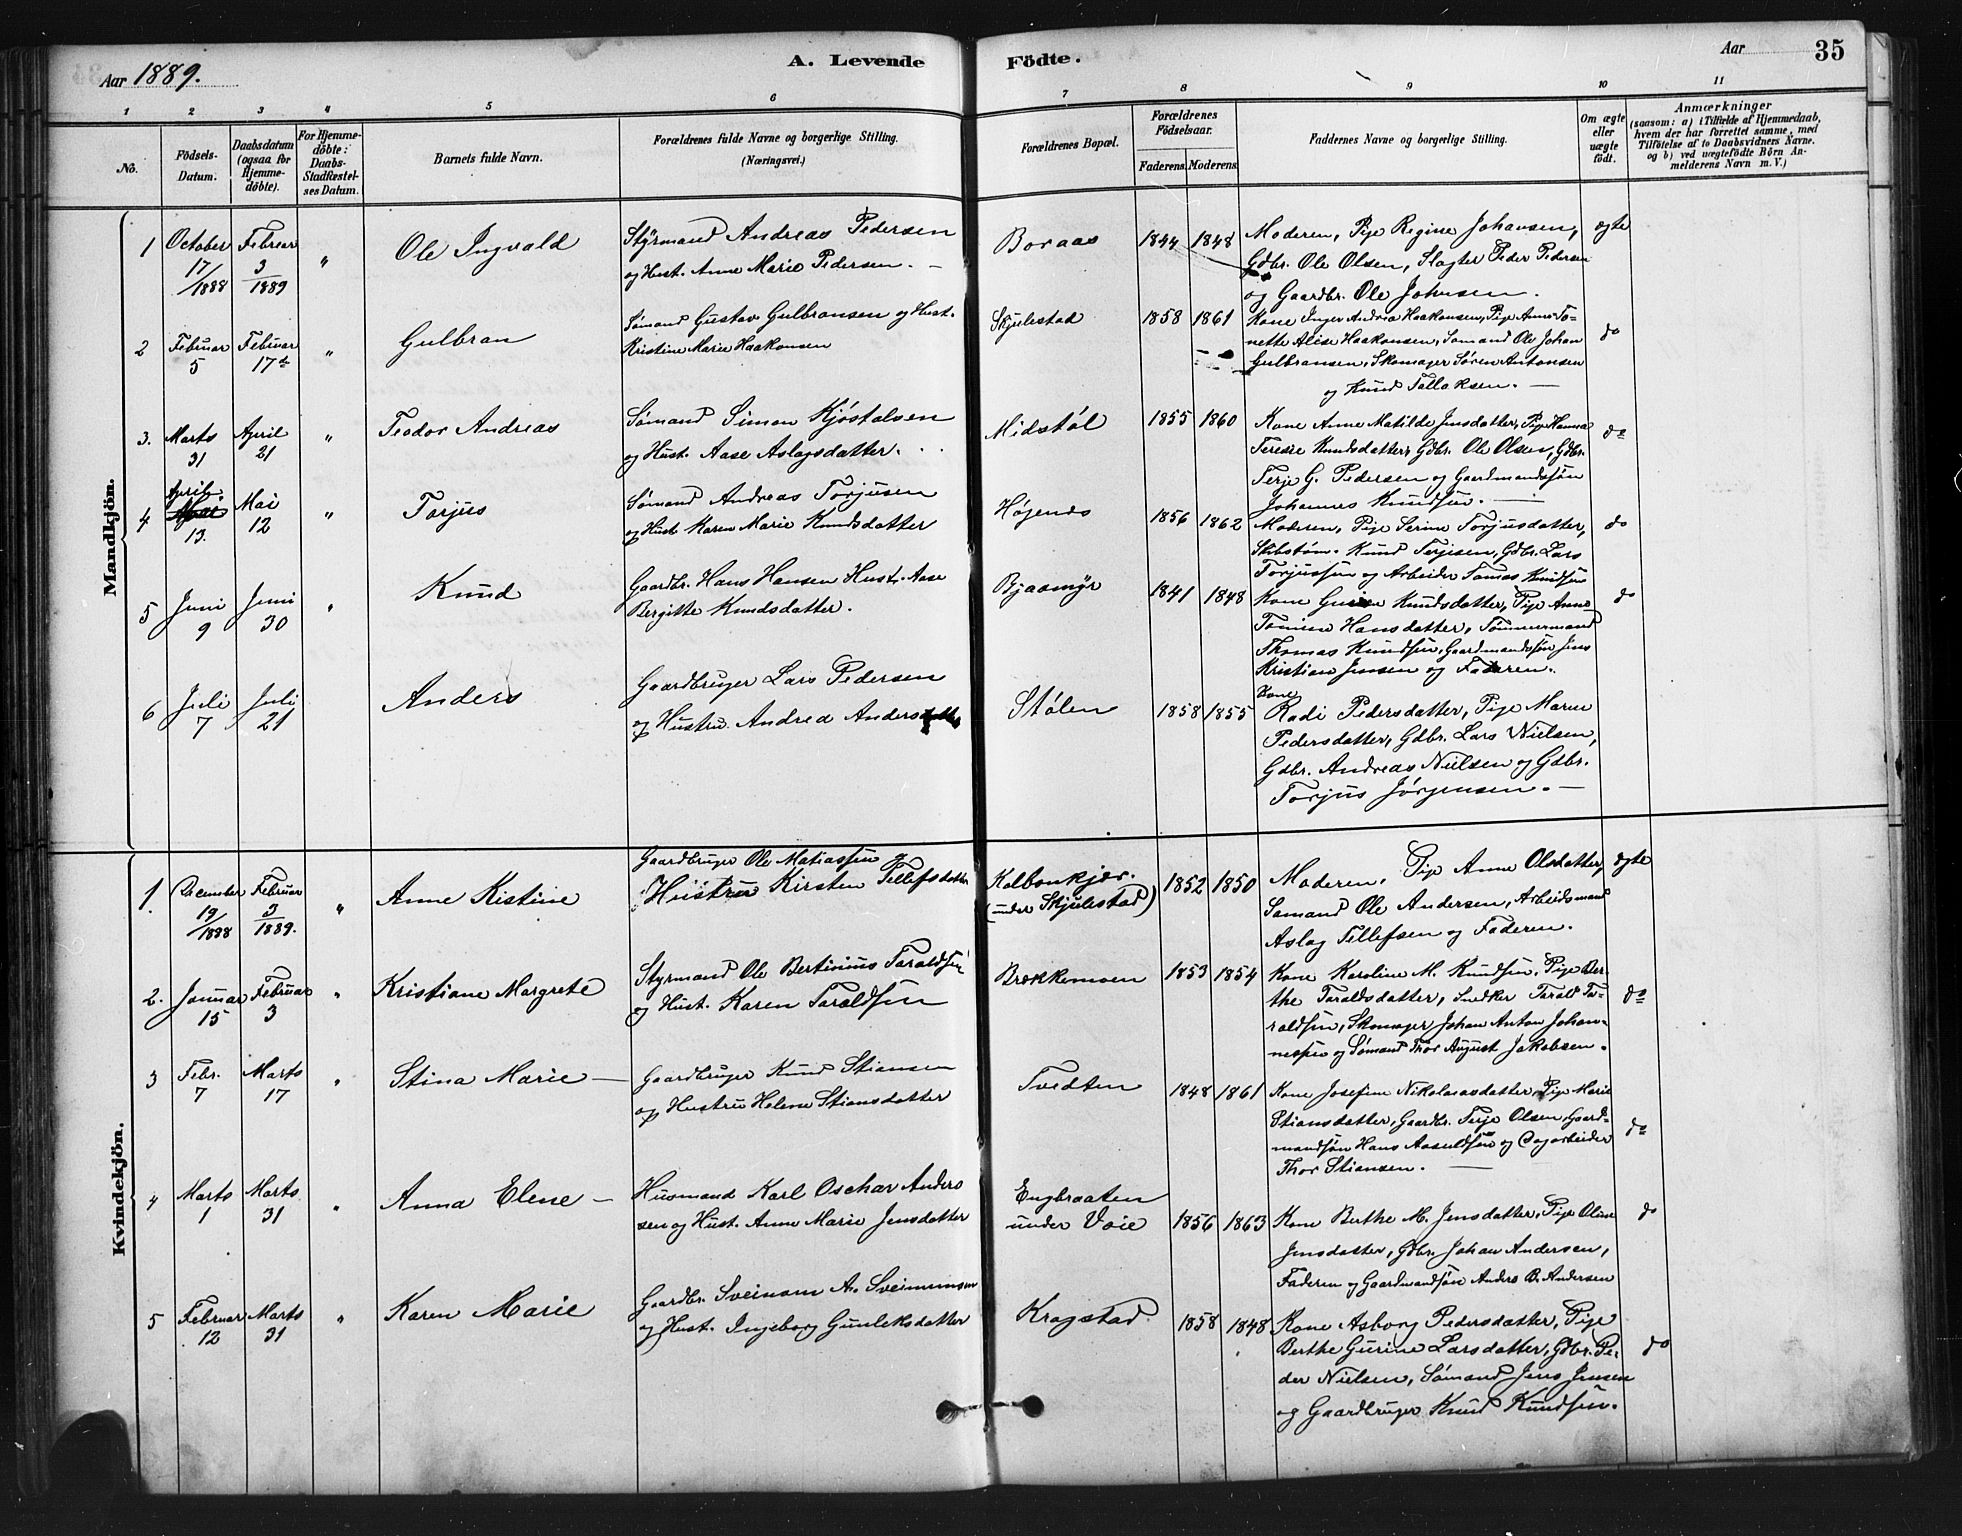 Aar 1889.
A. Levende Födte.
Aar 35
1 2 3 4 5 6 7 8 9 10 11
No.
Födsels-
Datum.
Daabsdatum
(ogsaa for
Hjemme-
döbte).
For Hjemme-
döbte:
Daabs-
Stadfæstel-
ses Datum.
Barnets fulde Navn.
Forældrenes fulde Navne og borgerlige Stilling.
(Næringsvei.)
Forældrenes Bopæl.
Forældrenes
Födselsaar.
Faderens. Moderens.
Faddernes Navne og borgerlige Stilling.
Om ægte
eller
uægte
födt.
Anmærkninger
(saasom: a) i Tilfælde af Hjemmedaab,
hvem der har forrettet samme, med
Tilföielse af to Daabsvidners Navne.
og b) ved uægtefödte Börn An-
melderens Navn m. V.)
Mandkjön.
1 October 17/1888 Februar 3/1889 " Ole Ingvald
Styrmand Andreas Pedersen
og Hust. Anne Marie Pedersen. —
Boraas 1844 1848
Moderen, Pige Regine Johansen,
Gdbr. Ole Olsen, Slagter Peder Pedersen
og Gaardbr. Ole Johnsen.
ægte
2 Februar 5 Februar 17de " Gulbran
Sømand Gustav Gulbransen og Hust.
Kristine Marie Haakonsen
Skjulestad 1858 1861
Kone Inger Andrea Haakonsen, Pige Anne To-
nette Alise Haakonsen, Sømand Ole Johan
Gulbransen, Skomager Søren Antonsen
og Knud Tallaksen. —
do
3. Marts 31 April 21 " Teodor Andreas
Sømand Simon Kjøstolsen
og Hust. Aase Aslagsdatter.
Midstøl 1855 1860
Kone Anne Matilde Jensdatter, Pige Hanna
Teresie Knudsdatter, Gdbr. Ole Olsen, Gdbr.
Terje G. Pedersen og Gaardmandssøn
Johannes Knudsen. —
do
4 April 13. Mai 12 " Torjus
Sømand Andreas Torjusen
og Hust. Karen Marie Knudsdatter
Høgenes 1856 1862
Moderen, Pige Serine Torjusdatter,
Skibstøm. Knud Terjesen, Gdbr. Lars
Torjussen og Arbeider Tomas Knudsen
do
5 Juni 9 Juni 30 " Knud
Gaardbr. Hans Hansen Hust. Aase
Bergitte Knudsdatter.
Bjaamyr 1841 1848
Kone Knudsdatter, Pige Anne
Tomine Hansdatter, Tømmermand
Thomas Knudsen, Gaardmandssøn Jens
Kristian Jensen og Faderen.
do
6 Juli 7 Juli 21 Anders
Gaardbruger Lars Pedersen
og Hustru Andrea Andersdatter
Stølen 1858 1855
Kone
Radi Pedersdatter, Pige Maren
Pedersdatter, Gdbr. Lars Nielsen,
Gdbr. Andreas Nielsen og Gdbr.
Torjus Jørgensen. —
Kvindekjön.
1. December 19/1888 Februar 3/1889. " Anne Kistine
Gaardbruger Ole Matiassen og
Hustru Kirsten Tellefsdatter
Kolbonkjær.
(under Skjulestad) 1852 1850
Moderen, Pige Anne Olsdatter,
Sømand Ole Andersen, Arbeidsmand
Aslag Tellefsen og Faderen.
ægte
2. Januar 15 Februar 3 " Kristiane Margrete
Styrmand Ole Bertinius Taraldsen
og Hust. Karen Taraldsen
Brækkemoen 1853 1854
Kone Karoline M. Knudsen, Pige Ber-
the Taraldsdatter, Snedker Tarald Ta-
raldsen, Skomager Johan Anton Johan-
nessen og Sømand Thor August Jakobsen.
do
3 Febr. 7 Marts 17 " Stina Marie —
Gaardbruger Knud Stiansen
og Hustru Helene Stiansdatter
Tvedten 1848 1861
Kone Josefine Nikolaiasdatter, Pige Marie
Stiansdatter, Gaardbr. Terje Olsen, Gaard-
mandsøn Hans Aasuldsen og Dagarbeider
Thor Stiansen. —
do
4 Marts 1 Marts 31 " Anna Elene —
Husmand Karl Oschar Anders
sen og Hust. Anne Marie Jensdatter
Engbraaten
under Voie 1856 1863
Kone Berthe M. Jensdatter, Pige Oline
Jensdatter, Gdbr. Johan Andersen,
Faderen og Gaardmandsøn Anders B. Andersen
do
5 Februar 12 Marts 31 " Karen Marie
Gaardbr. Sveinom A. Sveinumsen
og Hust. Ingeborg Gunleksdatter
Kragstad 1858 1848
Kone Asborg Pedersdatter, Pige
Berthe Gurine Larsdatter, Gdbr. Pe-
der Nielsen, Sømand Jens Jensen
og Gaardbruger Knud Knudsen.
do